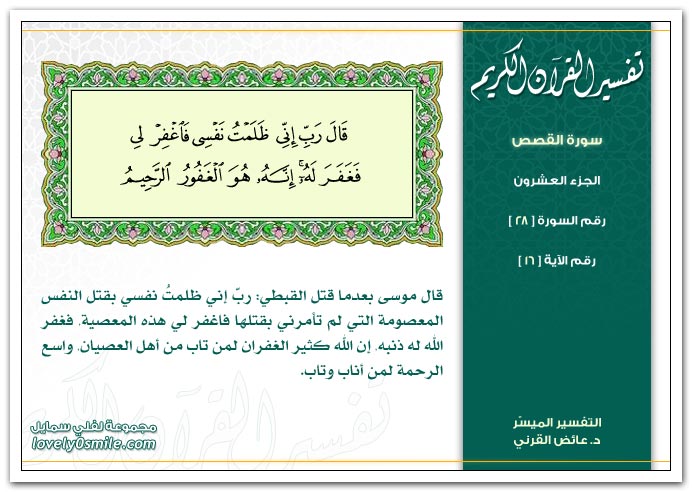 تفسير القرآن الكريم
سورة القصص
الجزء العشرون
رقم السورة [ ٢٨ ]
رقم الآية [ ١٦ ]
قَالَ رَبِّ إِنِّي ظَلَمْتُ نَفْسِي فَٱغْفِرْ لِي
فَغَفَرَ لَهُۥٓ ۚ إِنَّهُۥ هُوَ ٱلْغَفُورُ ٱلرَّحِيمُ
قال موسى بعدما قتل القبطي: ربّ إني ظلمتُ نفسي بقتل النفس
المعصومة التي لم تأمرني بقتلها فاغفر لي هذه المعصية، فغفر
الله له ذنبه، إن الله كثير الغفران لمن تاب من أهل العصيان، واسع
الرحمة لمن أناب وتاب.
تفسير القرآن الكريم
مجموعة لفلي سمايل
lovely0smile.com
التفسير الميسّر
د. عائض القرني